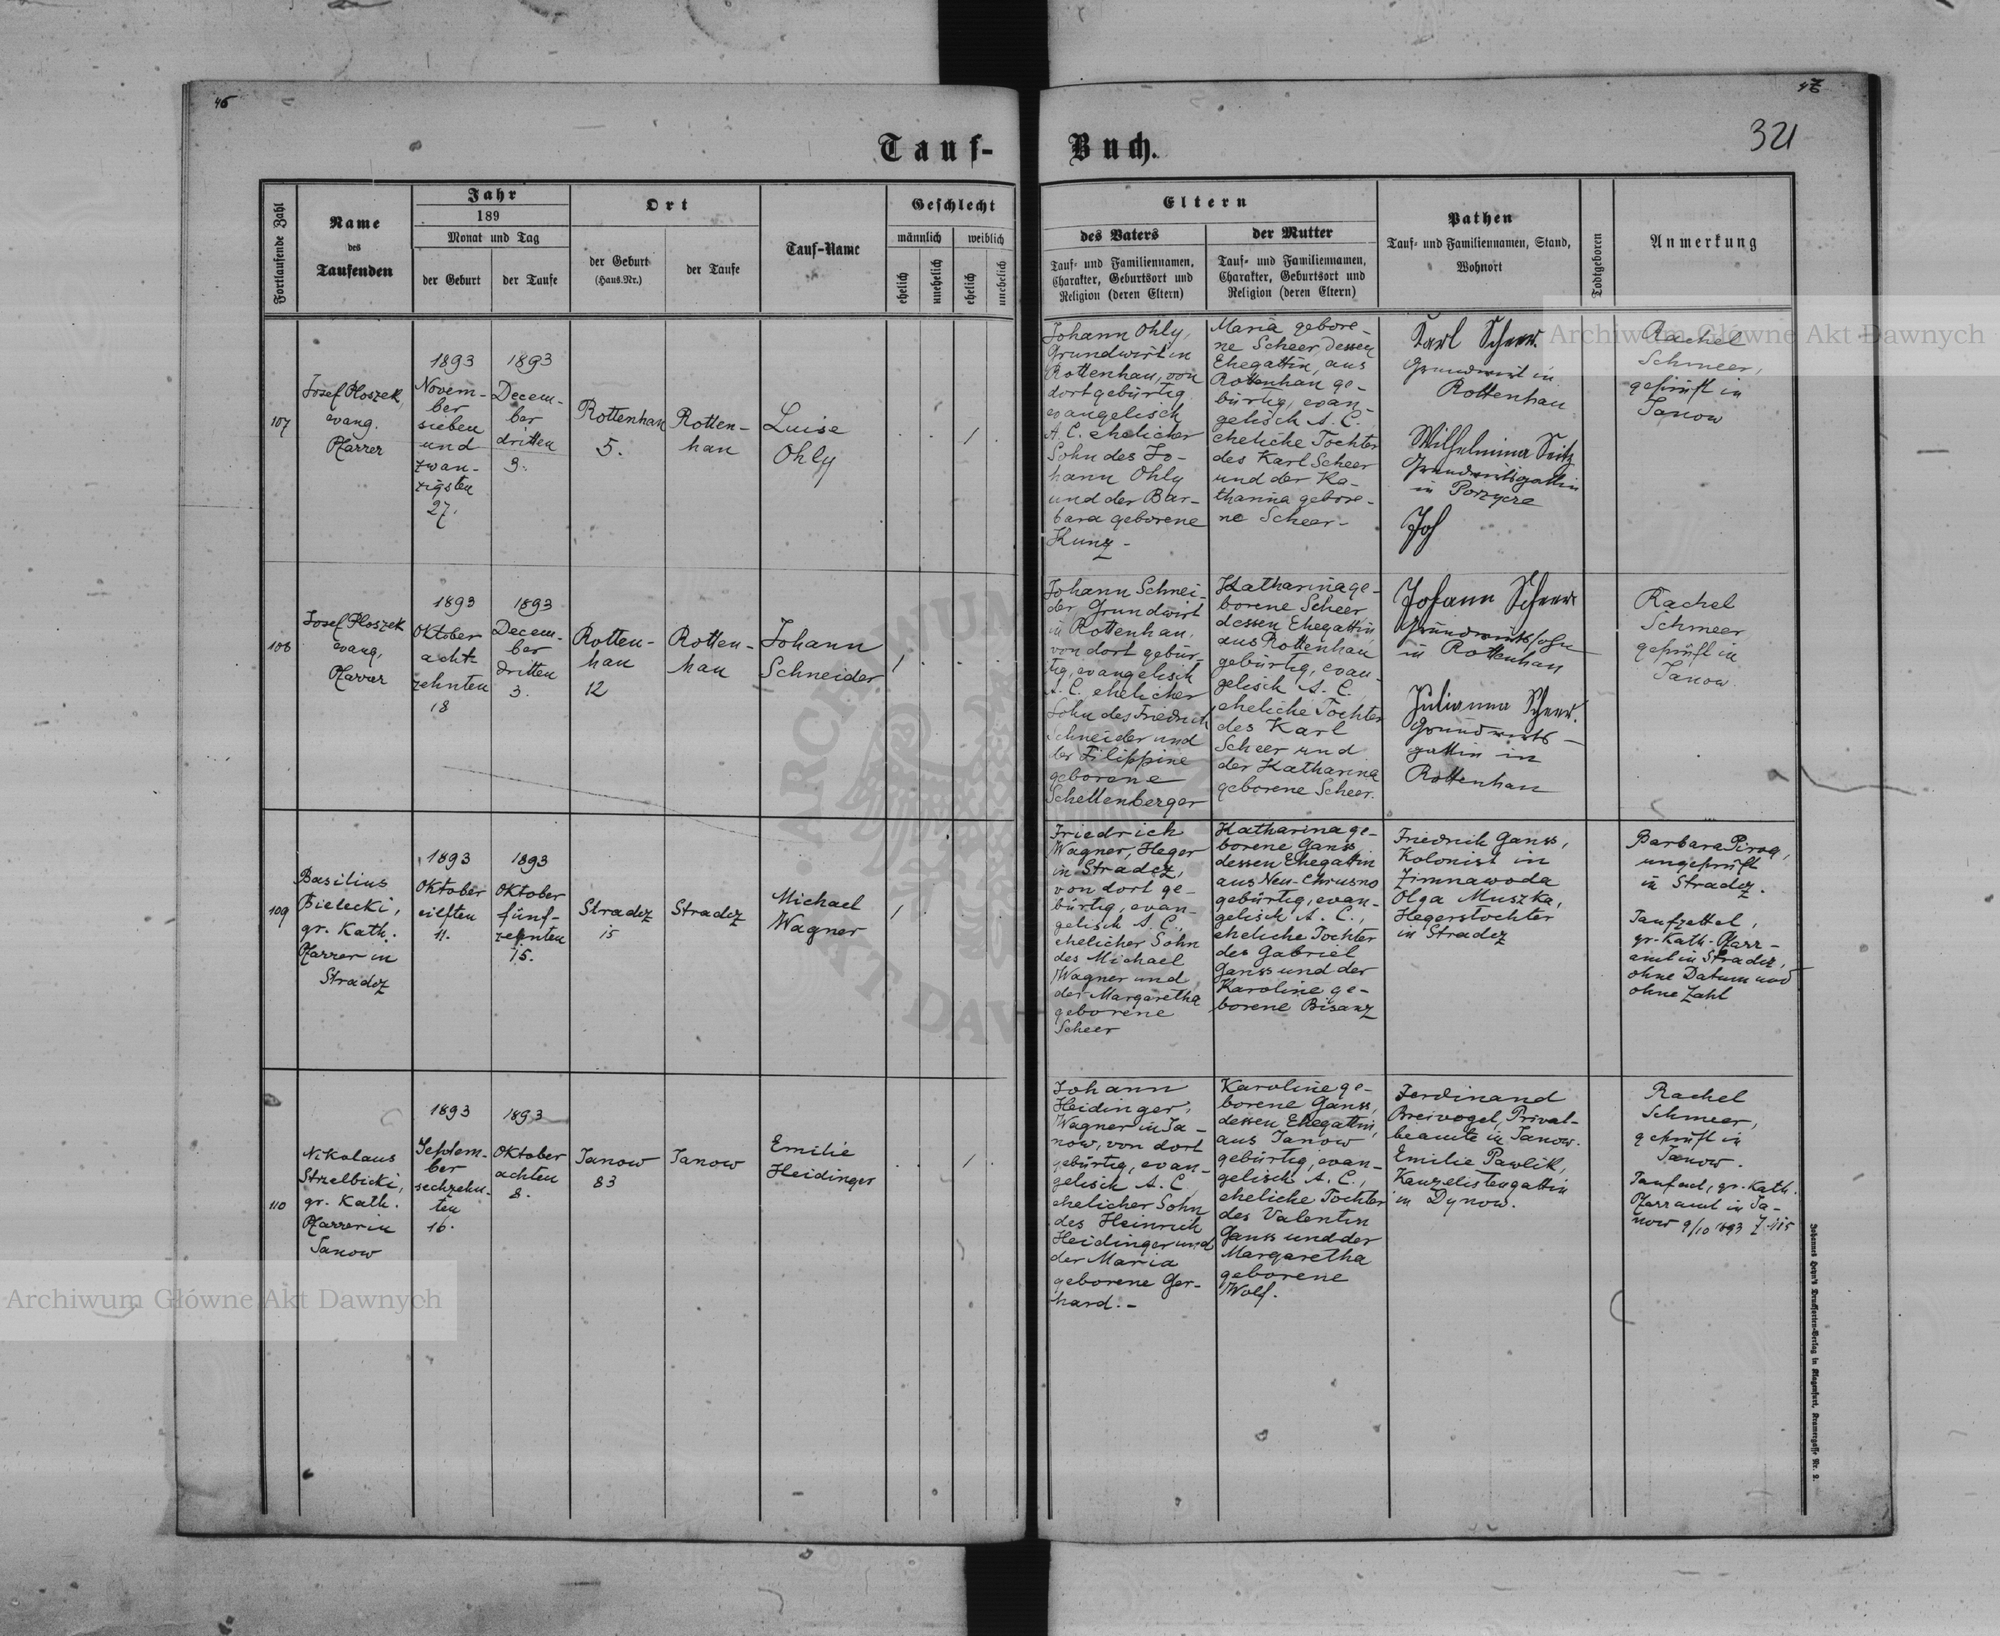 46
47
321
Tauf-
Buch.
Fortlaufende Zahl
Name
des
Taufenden
Jahr
189
Monat und Tag
der Geburt
der Taufe
Ort
der Geburt
(Haus-Nr.)
der Taufe
Tauf-Name
Geschlecht
männlich
weiblich
ehelich
unehelich
ehelich
unehelich
Eltern
des Vaters
Tauf- und Familiennamen,
Charakter, Geburtsort und
Religion (deren Eltern)
der Mutter
Tauf- und Familiennamen,
Charakter, Geburtsort und
Religion (deren Eltern)
Pathen
Tauf- und Familiennamen, Stand,
Wohnort
Todtgeboren
Anmerkung
107
Josef Ploszek,
evang.
Pfarrer
1893
Novem-
ber
sieben
und
zwan-
zigsten
27.
1893
Decem-
ber
dritten
3.
Rottenhan
5.
Rotten-
han
Luise
Ohly
1
Johann Ohly,
Grundwirt in
Rottenhan, von
dort gebürtig
evangelisch
A. C. ehelicher
Sohn des Jo-
hann Ohly
und der Bar-
bara geborene
Kunz -
Maria gebore-
ne Scheer, dessen
Ehegattin, aus
Rottenhan ge-
bürtig, evan-
gelisch A. C.
eheliche Tochter
des Karl Scheer
und der Ka-
tharina gebore-
ne Scheer -
Karl Scheer.
Grundwirt in
Rottenhan
Wilhelmina Seitz
Grundwirtsgattin
in Porzycze
Joh
Rachel
Schmeer,
geprüft in
Janow
108
Josef Ploszek
evang.
Pfarrer
1893
Oktober
acht-
zehnten
18
1893
Decem-
ber
dritten
3.
Rotten-
han
12
Rotten-
han
Johann
Schneider
1
Johann Schnei-
der Grundwirt
in Rottenhan,
von dort gebür-
tig, evangelisch
A. C. ehelicher
Sohn des Friedrich
Schneider und
der Filippine
geborene
Schellenberger
Katharina ge-
borene Scheer
dessen Ehegattin,
aus Rottenhan
gebürtig, evan-
gelisch A. C.
eheliche Tochter
des Karl
Scheer und
der Katharina
geborene Scheer.
Johann Scheer
Grundwirtssohn
in Rottenhan
Julianna Scheer.
Grundwirts-
gattin in
Rottenhan
Rachel
Schmeer
geprüft in
Janow.
109
Basilius
Bielecki,
gr. Kath.
Pfarrer in
Stradcz
1893
Oktober
eilften
11.
1893
Oktober
fünf-
zehnten
15.
Stradcz
15
Stradcz
Michael
Wagner
1
Friedrich
Wagner, Heger
in Stradcz,
von dort ge-
bürtig, evan-
gelisch A. C.,
ehelicher Sohn
des Michael
Wagner und
der Margaretha
geborene
Scheer
Katharina ge-
borene Ganss
dessen Ehegattin
aus Neu-Chrusno
gebürtig, evan-
gelisch A. C.,
eheliche Tochter
des Gabriel
Ganss und der
Karoline ge-
borene Bisanz
Friedrich Ganss,
Kolonist in
Zimnawoda
Olga Muszka,
Hegerstochter
in Stradcz
Barbara Pirog,
ungeprüft
in Stradcz.
Taufzettel,
gr. Kath. Pfarr-
amt in Stradcz,
ohne Datum und
ohne Zahl
110
Nikolaus
Strzelbicki,
gr. Kath.
Pfarrer in
Janow
1893
Septem-
ber
sechzehn-
ten
16.
1893
Oktober
achten
8.
Janow
83
Janow
Emilie
Heidinger
1
Johann
Heidinger,
Wagner in Ja-
now, von dort
gebürtig, evan-
gelisch A. C.
ehelicher Sohn
des Heinrich
Heidinger und
der Maria
geborene Ger-
hard. -
Karoline ge-
borene Ganss,
dessen Ehegattin,
aus Janow
gebürtig, evan-
gelisch A. C.,
eheliche Tochter
des Valentin
Ganss und der
Margaretha
geborene
Wolf.
Ferdinand
Breivogel, Privat-
beamte in Janow.
Emilie Pawlik,
Kanzelistengattin
in Dynow.
Rachel
Schmeer,
geprüft in
Janow.
gr. Kath.
Pfarramt in Ja-
now 9/10 1893 Z. 115
Johannes Heyn's Drucksorten-Verlag in Klagenfurt, Kramergasse Nr. 2.
Archiwum Główne Akt Dawnych
Archiwum Główne Akt Dawnych